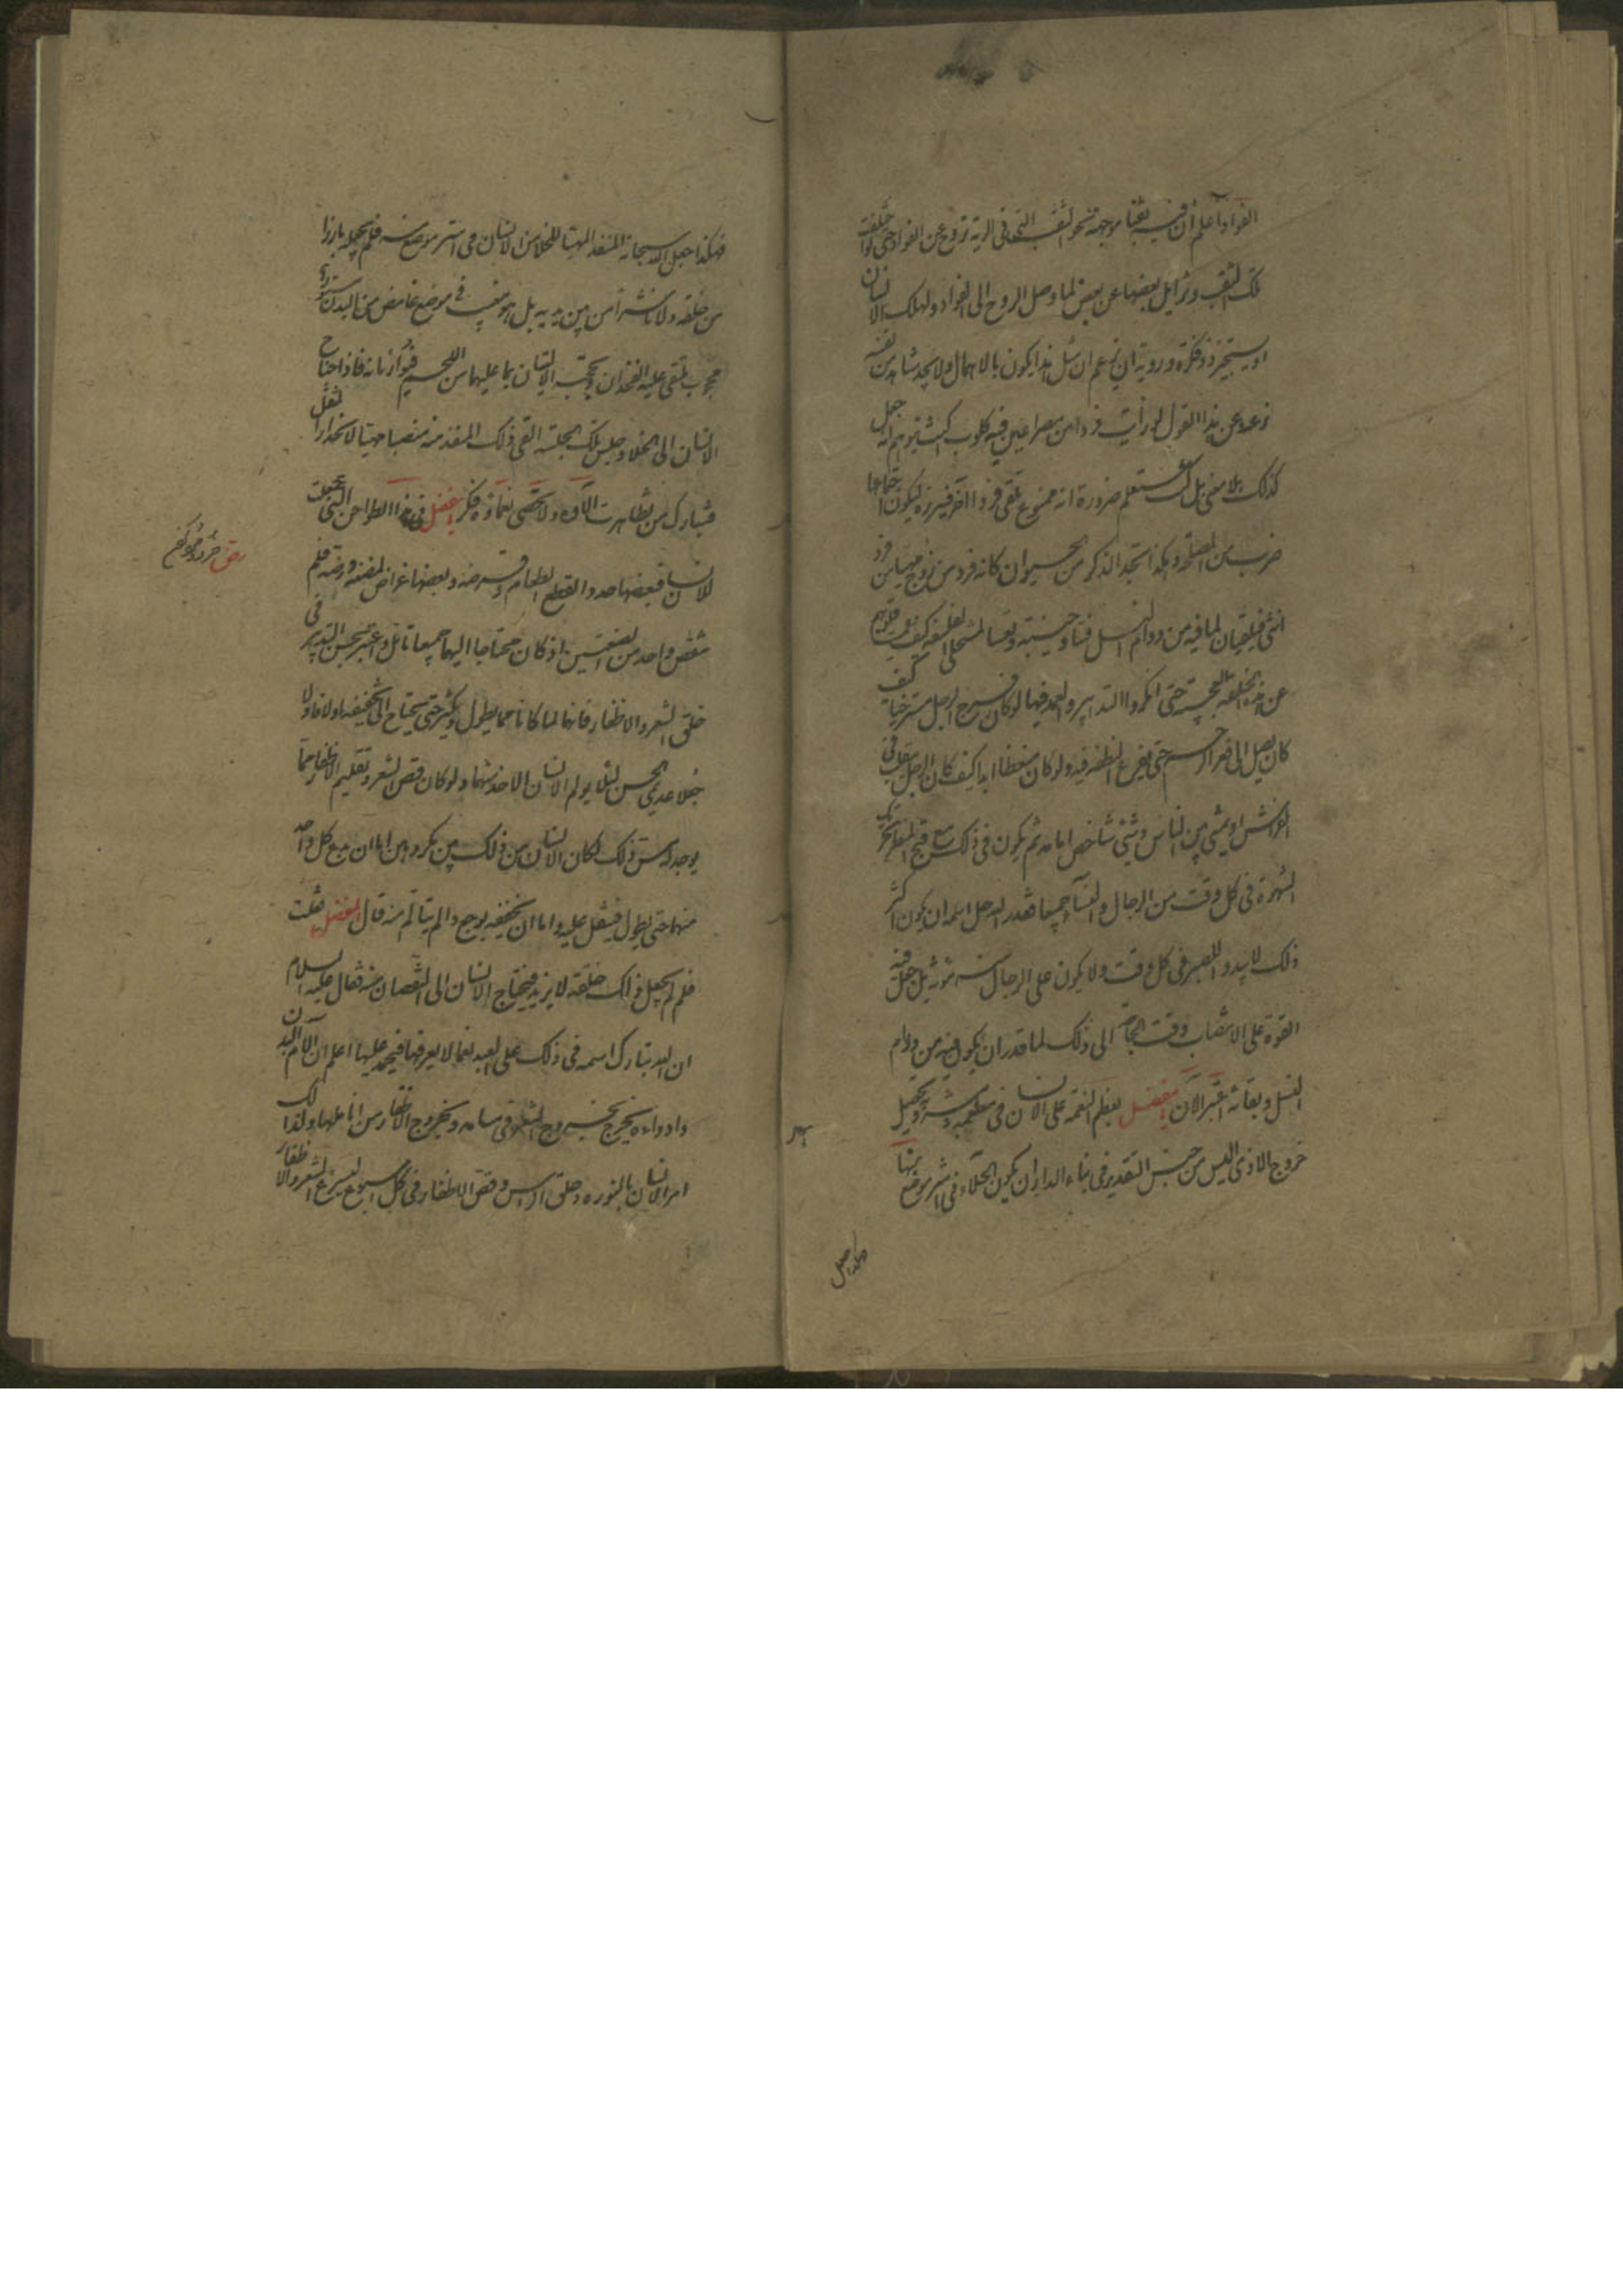 الفؤاد واعلم ان فيه ثقبا موجهة نحو الثقب التى فى الرية تروح عن الفؤاد حتى لو اختلفت
تلك الثقب وتزايل بعضها عن بعض لما وصل الروح الى الفؤاد ولهلك الانسان
او يستجيز ذو فكرة وروية ان يزعم ان مثل هذا يكون بالاهمال ولا يجد شاهدا من نفسه
يزعه عن هذا القول لو رأيت فردا من مصراعين فيه كلوب اكنت تتوهم انه جعل
كذلك بلا معنى بل كنت تعلم ضرورة انه مصنوع يلقى فردا اخر فيبرزه ليكون فى اجتماعهما
ضرب من المصلحة وهكذا تجد الذكر من الحيوان كانه فرد من زوج مهيأ من فرد
انثى فيلتقيان لما فيه من دوام النسل فتبا وخيبة وتعسا لمنتحلى الفلسفة كيف عميت قلوبهم
عن هذه الخلقة العجيبة حتى انكروا التدبير والعمد فيها لو كان فرج الرجل مسترخيا كيف
كان يصل الى قعر الرحم حتى يفرغ النطفة فيه ولو كان منعظا ابدا كيف كان الرجل يتقلب فى
الفراش او يمشى بين الناس وشىء شاخص امامه ثم يكون فى ذلك مع قبح المنظر تحريك
الشهوة فى كل وقت من الرجال والنساء جميعا فقدر الله جل اسمه ان يكون اكثر
ذلك لا يبدو للبصر فى كل وقت ولا يكون على الرجال منه مؤنة بل جعل فيه
القوة على الانتصاب وقت الحاجة الى ذلك لما قدر ان يكون فيه من دوام
النسل وبقائه اعتبر الآن يا مفضل بعظم النعمة على الانسان فى مطعمه ومشربه وتسهيل
خروج الاذى اليس من حسن التقدير فى بناء الدار ان يكون الخلاء فى استر موضع منها
فهكذا جعل الله سبحانه المنفذ المهيأ للخلاء من الانسان فى استر موضع منه فلم يجعله بارزا
من خلفه ولا ناشزا من بين يديه بل هو مغيب فى موضع غامض من البدن مستور
محجوب يلتقى عليه الفخذان وتحجبه الاليتان بما عليهما من اللحم فتواريانه فاذا احتاج
الانسان الى الخلاء وجلس تلك الجلسة القى ذلك المنفذ منه منصبا مهيئا لانحدار الثفل
فتبارك من تظاهرت الآؤه ولا تحصى نعماؤه فكر يا مفضل فى هذا الطواحن التى جعلت
للانسان فبعضها حداد لقطع الطعام وقرضه وبعضها عراض لمضغه ورضه فلم
ينقص واحد من الصفتين اذ كان محتاجا اليهما جميعا تامل واعتبر بحسن التدبير فى
خلق الشعر والاظفار فانهما لما كانا مما يطول ويكثر حتى يحتاج الى تخفيفه اولا فاولا
جعلا عديمى الحس لئلا يولم الانسان الاخذ منهما ولو كان قص الشعر وتقليم الاظفار مما
يوجد له مس ذلك لكان الانسان من ذلك بين مكروهين اما ان يدع كل واحد
منهما حتى يطول فيثقل عليه واما ان يخففه بوجع والم يتألم منه قال المفضل فقلت
فلم لم يجعل ذلك خلقة لا يزيد فيحتاج الانسان الى النقصان منه فقال عليه السلام
ان الله تبارك اسمه فى ذلك على العبد نعما لا يعرفها فيحمد عليها اعلم ان آلام البدن
وادواءه تخرج بخروج الشعر فى مسامه وبخروج الاظفار من اناملها ولذلك
امر الانسان بالنورة وحلق الراس وقص الاظفار فى كل اسبوع ليسرع الشعر والاظفار
رض